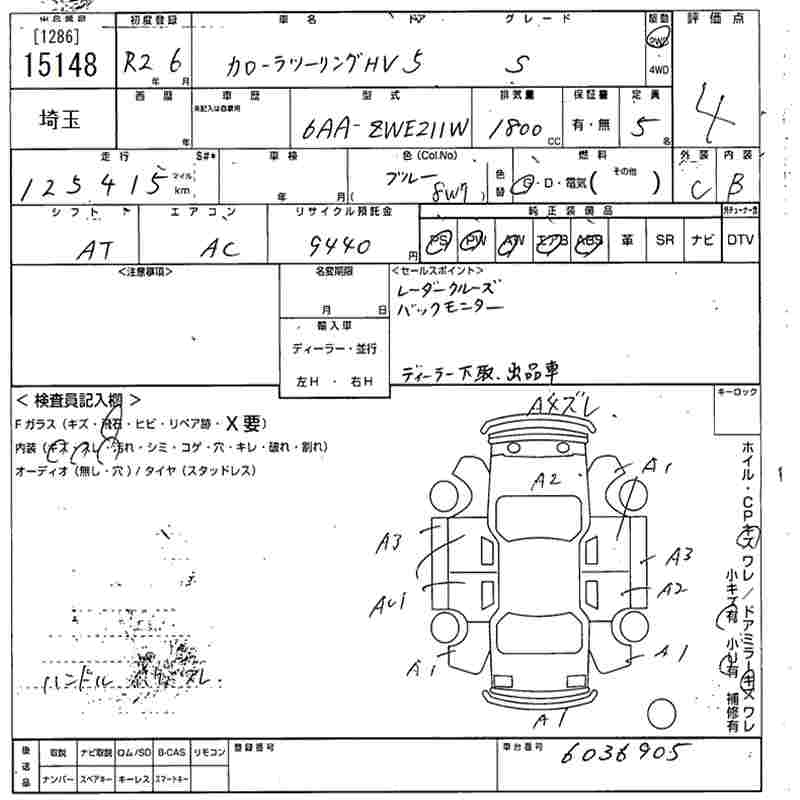 [1286]
15148
初度登録 車名 ドア グレード 駆動 評価点
R2年 6月 カローラツーリングHV 5 S 2WD 4WD
4
埼玉
西暦 車歴 型式 排気量 保証書 定員
年 未記入は自家用 6AA-ZWE211W 1800cc 有・無 5名
走行 S#* 車検 色(Col.No) 色替 燃料 外装 内装
125415 マイル km 年 月 ブルー (8W7) G・D・電気( その他 ) C B
シフト エアコン リサイクル預託金 純正装備品
AT AC 9440円 PS PW AW エアB ABS 革 SR ナビ DTV
<注意事項> 名変期限 <セールスポイント>
月 日
レーダークルーズ
バックモニター
輸入車
ディーラー・並行
左H ・ 右H
ディーラー下取、出品車
キーロック
< 検査員記入欄 >
Fガラス(キズ・飛石・ヒビ・リペア跡・X要)
内装(キズ・スレ・汚れ・シミ・コゲ・穴・キレ・破れ・割れ)
オーディオ(無し・穴)/タイヤ(スタッドレス)
A4ズレ
A2
A1
A3
A3
AU1
A2
A1
A1
A1
ハンドル スレ
ホイル・CPキズ ワレ/ドアミラーキズ ワレ
小キズ有 小U有 補修有
後送品 取説 ナビ取説 ロム/SD B-CAS リモコン 登録番号 車台番号
ナンバー スペアキー キーレス スマートキー
6036905